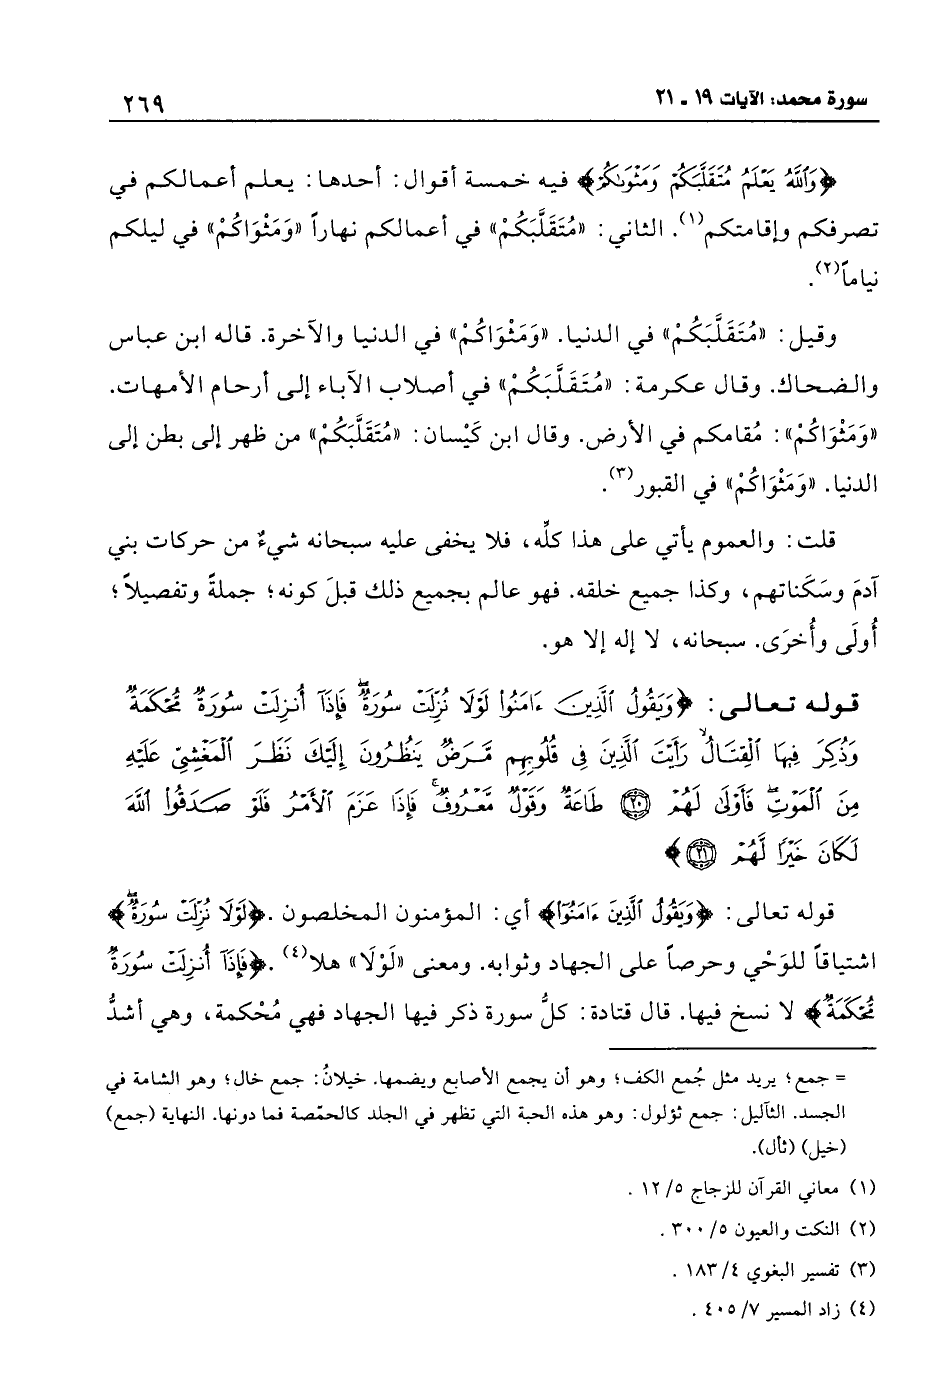 سورة محمد: الآيات ١٩ ـ ٢١
٢٦٩
﴿وَاللَّهُ يَعْلَمُ مُتَقَلَّبَكُمْ وَمَثْوَىٰكُمْ﴾ فيه خمسة أقوال: أحدها: يعلم أعمالكم في
تصرفكم وإقامتكم(١). الثاني: «مُتَقَلَّبَكُمْ» في أعمالكم نهاراً «وَمَثْوَاكُمْ» في ليلكم
نياماً(٢).
وقيل: «مُتَقَلَّبَكُمْ» في الدنيا. «وَمَثْوَاكُمْ» في الدنيا والآخرة. قاله ابن عباس
والضحاك. وقال عكرمة: «مُتَقَلَّبَكُمْ» في أصلاب الآباء إلى أرحام الأمهات.
«وَمَثْوَاكُمْ»: مُقامكم في الأرض. وقال ابن كَيْسان: «مُتَقَلَّبَكُمْ» من ظهر إلى بطن إلى
الدنيا. «وَمَثْوَاكُمْ» في القبور(٣).
قلت: والعموم يأتي على هذا كلِّه، فلا يخفى عليه سبحانه شيءٌ من حركات بني
آدمَ وسَكَناتهم، وكذا جميع خلقه. فهو عالم بجميع ذلك قبلَ كونه؛ جملةً وتفصيلاً؛
أُولَى وأُخرَى. سبحانه، لا إله إلا هو.
قوله تعالى: ﴿وَيَقُولُ الَّذِينَ ءَامَنُوا لَوْلَا نُزِّلَتْ سُورَةٌ ۖ فَإِذَآ أُنزِلَتْ سُورَةٌ مُّحْكَمَةٌ
وَذُكِرَ فِيهَا الْقِتَالُ ۙ رَأَيْتَ الَّذِينَ فِي قُلُوبِهِم مَّرَضٌ يَنظُرُونَ إِلَيْكَ نَظَرَ الْمَغْشِيِّ عَلَيْهِ
مِنَ الْمَوْتِ ۖ فَأَوْلَىٰ لَهُمْ ۝٢٠ طَاعَةٌ وَقَوْلٌ مَّعْرُوفٌ ۚ فَإِذَا عَزَمَ الْأَمْرُ فَلَوْ صَدَقُوا اللَّهَ
لَكَانَ خَيْرًا لَّهُمْ ۝٢١﴾
قوله تعالى: ﴿وَيَقُولُ الَّذِينَ ءَامَنُوا﴾ أي: المؤمنون المخلصون. ﴿لَوْلَا نُزِّلَتْ سُورَةٌ ۖ﴾
اشتياقاً للوَحْي وحرصاً على الجهاد وثوابه. ومعنى «لَوْلَا» هلا(٤). ﴿فَإِذَآ أُنزِلَتْ سُورَةٌ
مُّحْكَمَةٌ﴾ لا نسخ فيها. قال قتادة: كلُّ سورة ذكر فيها الجهاد فهي مُحْكمة، وهي أشدُّ
= جمع؛ يريد مثل جُمع الكف؛ وهو أن يجمع الأصابع ويضمها. خيلانُ: جمع خال؛ وهو الشامة في
الجسد. الثآليل: جمع ثؤلول: وهو هذه الحبة التي تظهر في الجلد كالحمّصة فما دونها. النهاية (جمع)
(خيل) (ثأل).
(١) معاني القرآن للزجاج ٥/ ١٢ .
(٢) النكت والعيون ٥/ ٣٠٠ .
(٣) تفسير البغوي ٤/ ١٨٣ .
(٤) زاد المسير ٧/ ٤٠٥ .